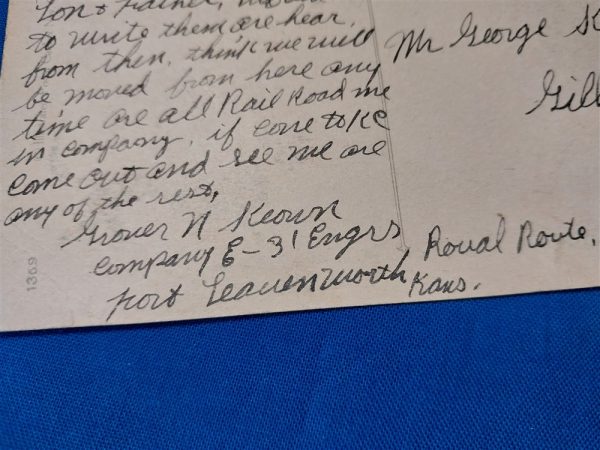 to write them are hear
from then. think we will
be moved from here any
time are all Rail Road me
in company, if come to KC
come out and see me are
any of the rest,
Grover N Keown
Company E-31 Engrs
Fort Leavenworth
Kans.
Mr George K
Gill
Roual Route.
1369